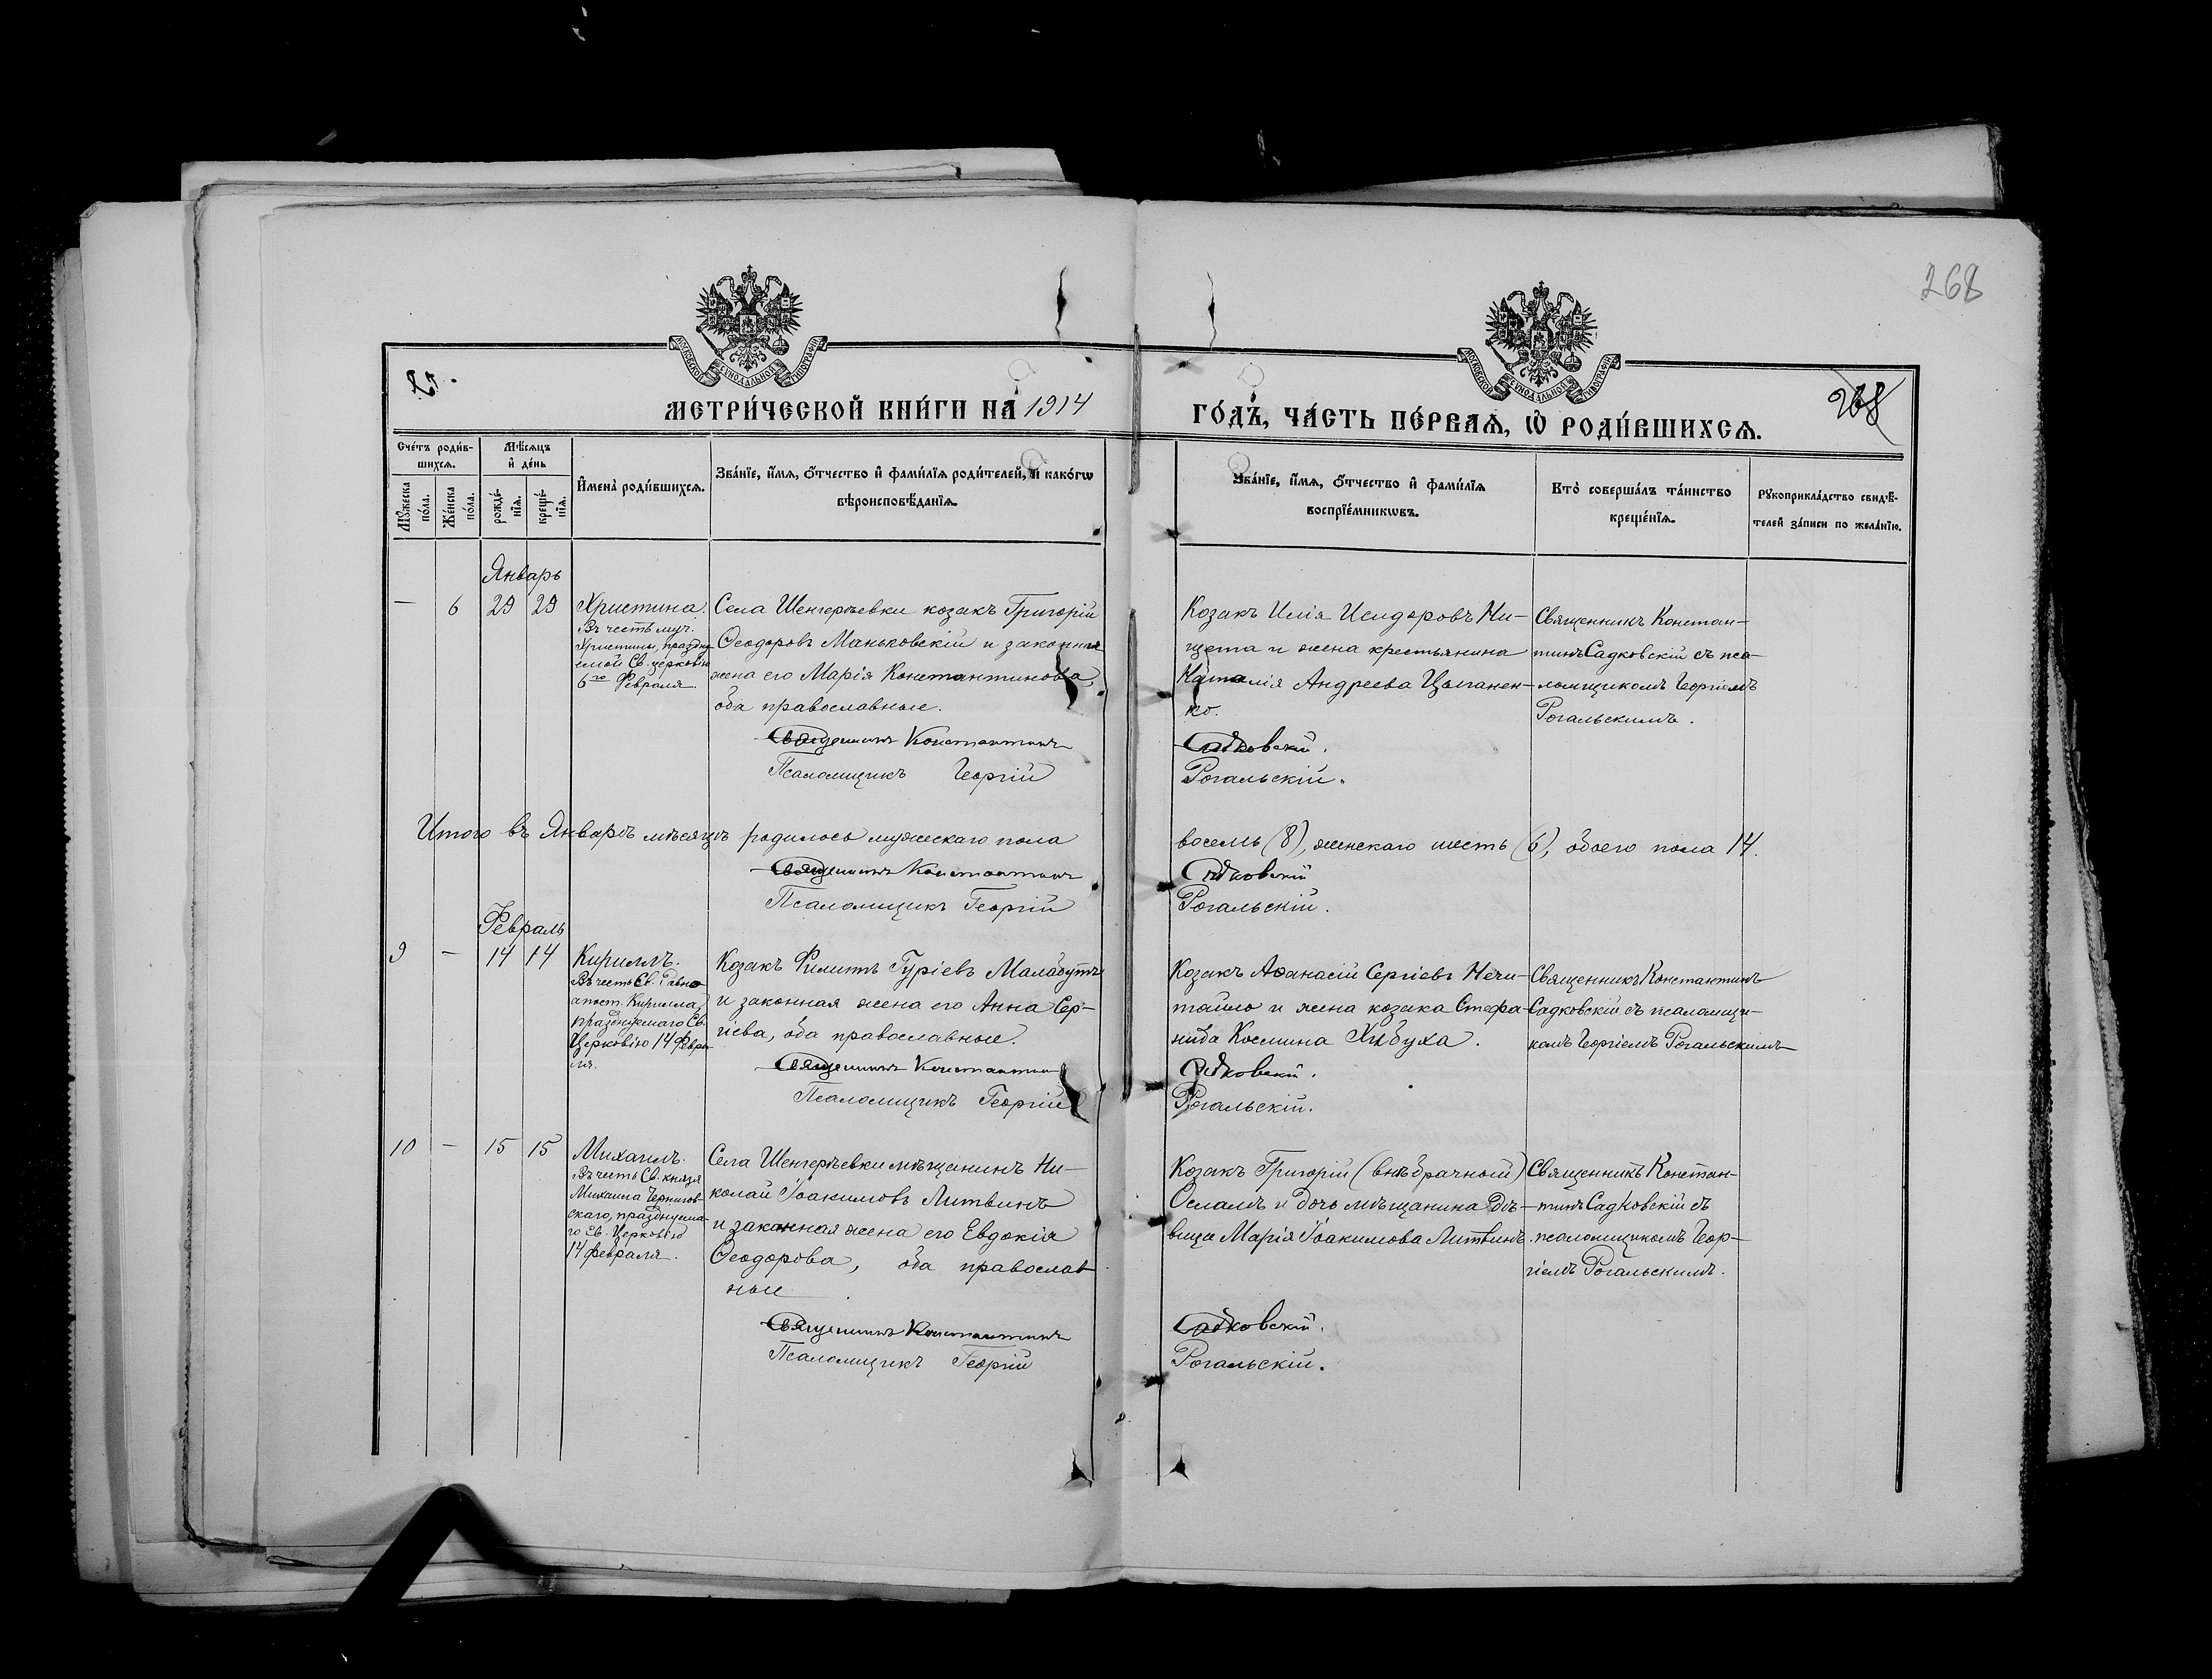 268
МОСКОВСКОЙ СѴНОДАЛЬНОЙ ТИПОГРАФІИ
МОСКОВСКОЙ СѴНОДАЛЬНОЙ ТИПОГРАФІИ
268
МЕТРИ́ЧЕСКОЙ КНИ́ГИ НА 1914
ГО́ДЪ, ЧА́СТЬ ПЕ́РВАѦ, Ѡ҆ РОДИ́ВШИХСѦ.
Сче́тъ роди́в-
шихсѧ.
Мѣ́сѧцъ
и҆ де́нь
Мꙋ́жеска
по́ла.
Же́нска
по́ла.
рожде́-
нїѧ.
креще́-
нїѧ.
И҆мена̀ роди́вшихсѧ.
Зва́нїе, и҆́мѧ, ѻ҆́тчество и҆ фами́лїѧ роди́телей, и҆ како́гѡ
вѣроисповѣ́данїѧ.
Зва́нїе, и҆́мѧ, ѻ҆́тчество и҆ фами́лїѧ
воспрїе́мникѡвъ.
Кто̀ соверша́лъ та́инство
креще́нїѧ.
Рꙋкоприкла́дство свидѣ́-
телей за́писи по жела́нїю.
Январь
— 6 29 29
Христина.
Въ честь муч.
Христины, праздну-
емой Св. церковью
6го Февраля.
Села Шенгеръевки козакъ Григорій
Ѳеодоровъ Маньковскій и законная
жена его Марія Константинова,
оба православные.
Священникъ Константинъ
Псаломщикъ Георгій
Козакъ Илія Исидоровъ Ни-
щета и жена крестьянина
Наталія Андреева Цыганен-
ко.
Садковскій.
Рогальскій.
Священникъ Констан-
тинъ Садковскій съ пса-
ломщикомъ Георгіемъ
Рогальскимъ.
Итого въ Январѣ мѣсяцѣ родилось мужескаго пола
восемь (8), женскаго шесть (6), обоего пола 14.
Священникъ Константинъ
Садковскій
Псаломщикъ Георгій
Рогальскій.
Февраль
9 — 14 14
Кириллъ.
Въ честь Св. Равно-
апост. Кирилла,
празднуемаго Св.
Церковію 14 Февра-
ля.
Козакъ Филиппъ Гуріевъ Малабутъ
и законная жена его Анна Сер-
гіева, оба православные.
Священникъ Константинъ
Псаломщикъ Георгій
Козакъ Аѳанасій Сергіевъ Нечи-
тайло и жена козака Стефа-
нида Космина Хибуха.
Садковскій.
Рогальскій.
Священникъ Константинъ
Садковскій съ псаломщи-
комъ Георгіемъ Рогальскимъ
10 — 15 15
Михаилъ.
Въ честь Св. князя
Михаила Чернигов-
скаго, празднуема-
го Св. Церковью
14 февраля.
Села Шенгеръевки мѣщанинъ Ни-
колай Іоакимовъ Литвинъ
и законная жена его Евдокія
Ѳеодорова, оба православ
ные
Священникъ Константинъ
Псаломщикъ Георгій
Козакъ Григорій (внѣбрачный)
Осламъ и дочь мѣщанина дѣ-
вица Марія Іоакимова Литвинъ.
Садковскій.
Рогальскій.
Священникъ Констан-
тинъ Садковскій съ
псаломщикомъ Геор-
гіемъ Рогальскимъ.